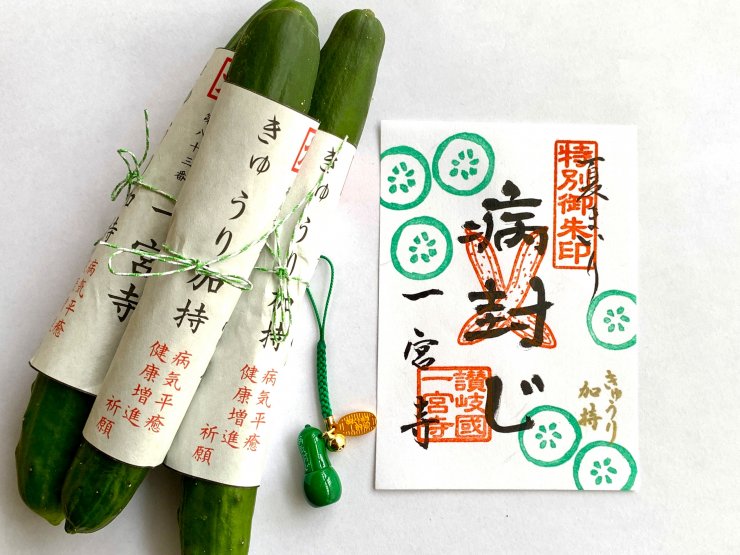 第八十三番
一宮寺
病気平癒
きゅうり加持
病気平癒
健康増進
祈願
きゅうり加持
病気平癒
健康増進
祈願
特別御朱印
夏まいり
病封じ
一宮寺
讃岐國
一宮寺
きゅうり
加持